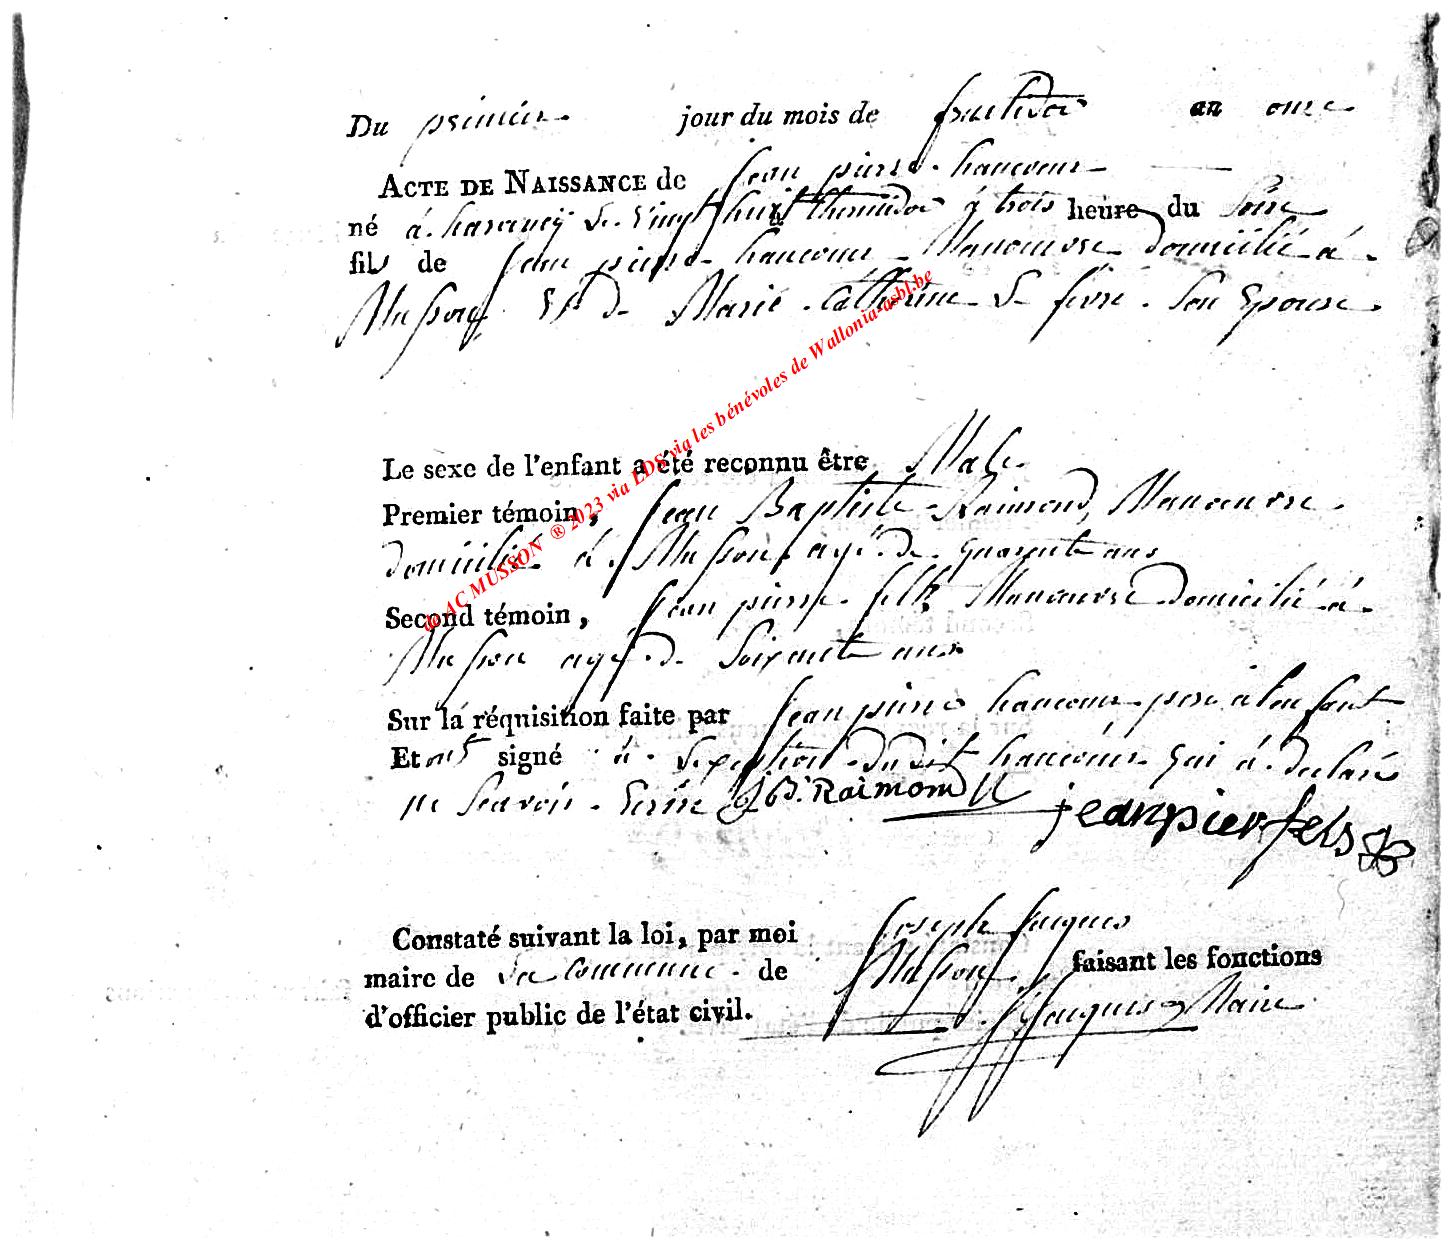 Du premier jour du mois de fructidor an onze
ACTE DE NAISSANCE de Jean pierre haucour
né à harancÿ Le Vingt huit thermidor à trois heure du Soire
fils de Jean pierre haucour Manoeuvre domicilié à
Musson Et de Marie Catherine Le fevre Son Epouse
Le sexe de l'enfant a été reconnu être Male
Premier témoin, Jean Baptiste Raimond, Manoeuvre
domicilié à Musson agé de quarente ans
Second témoin, Jean pierre fels Manoeuvre domicilié à
Musson agé de Soixente ans
Sur la réquisition faite par Jean pierre haucour pere à l'enfant
Et ont signé à Lexeption dudit haucour qui à declaré
ne Scavoir Ecrire J B. Raimond
jeanpier fels
Constaté suivant la loi, par moi Joseph Jacques
maire de La Commune de Musson faisant les fonctions
d'officier public de l'état civil. J Jacques Maire
de AC MUSSON ® 2023 via LDS via les bénévoles de Wallonia-asbl.be